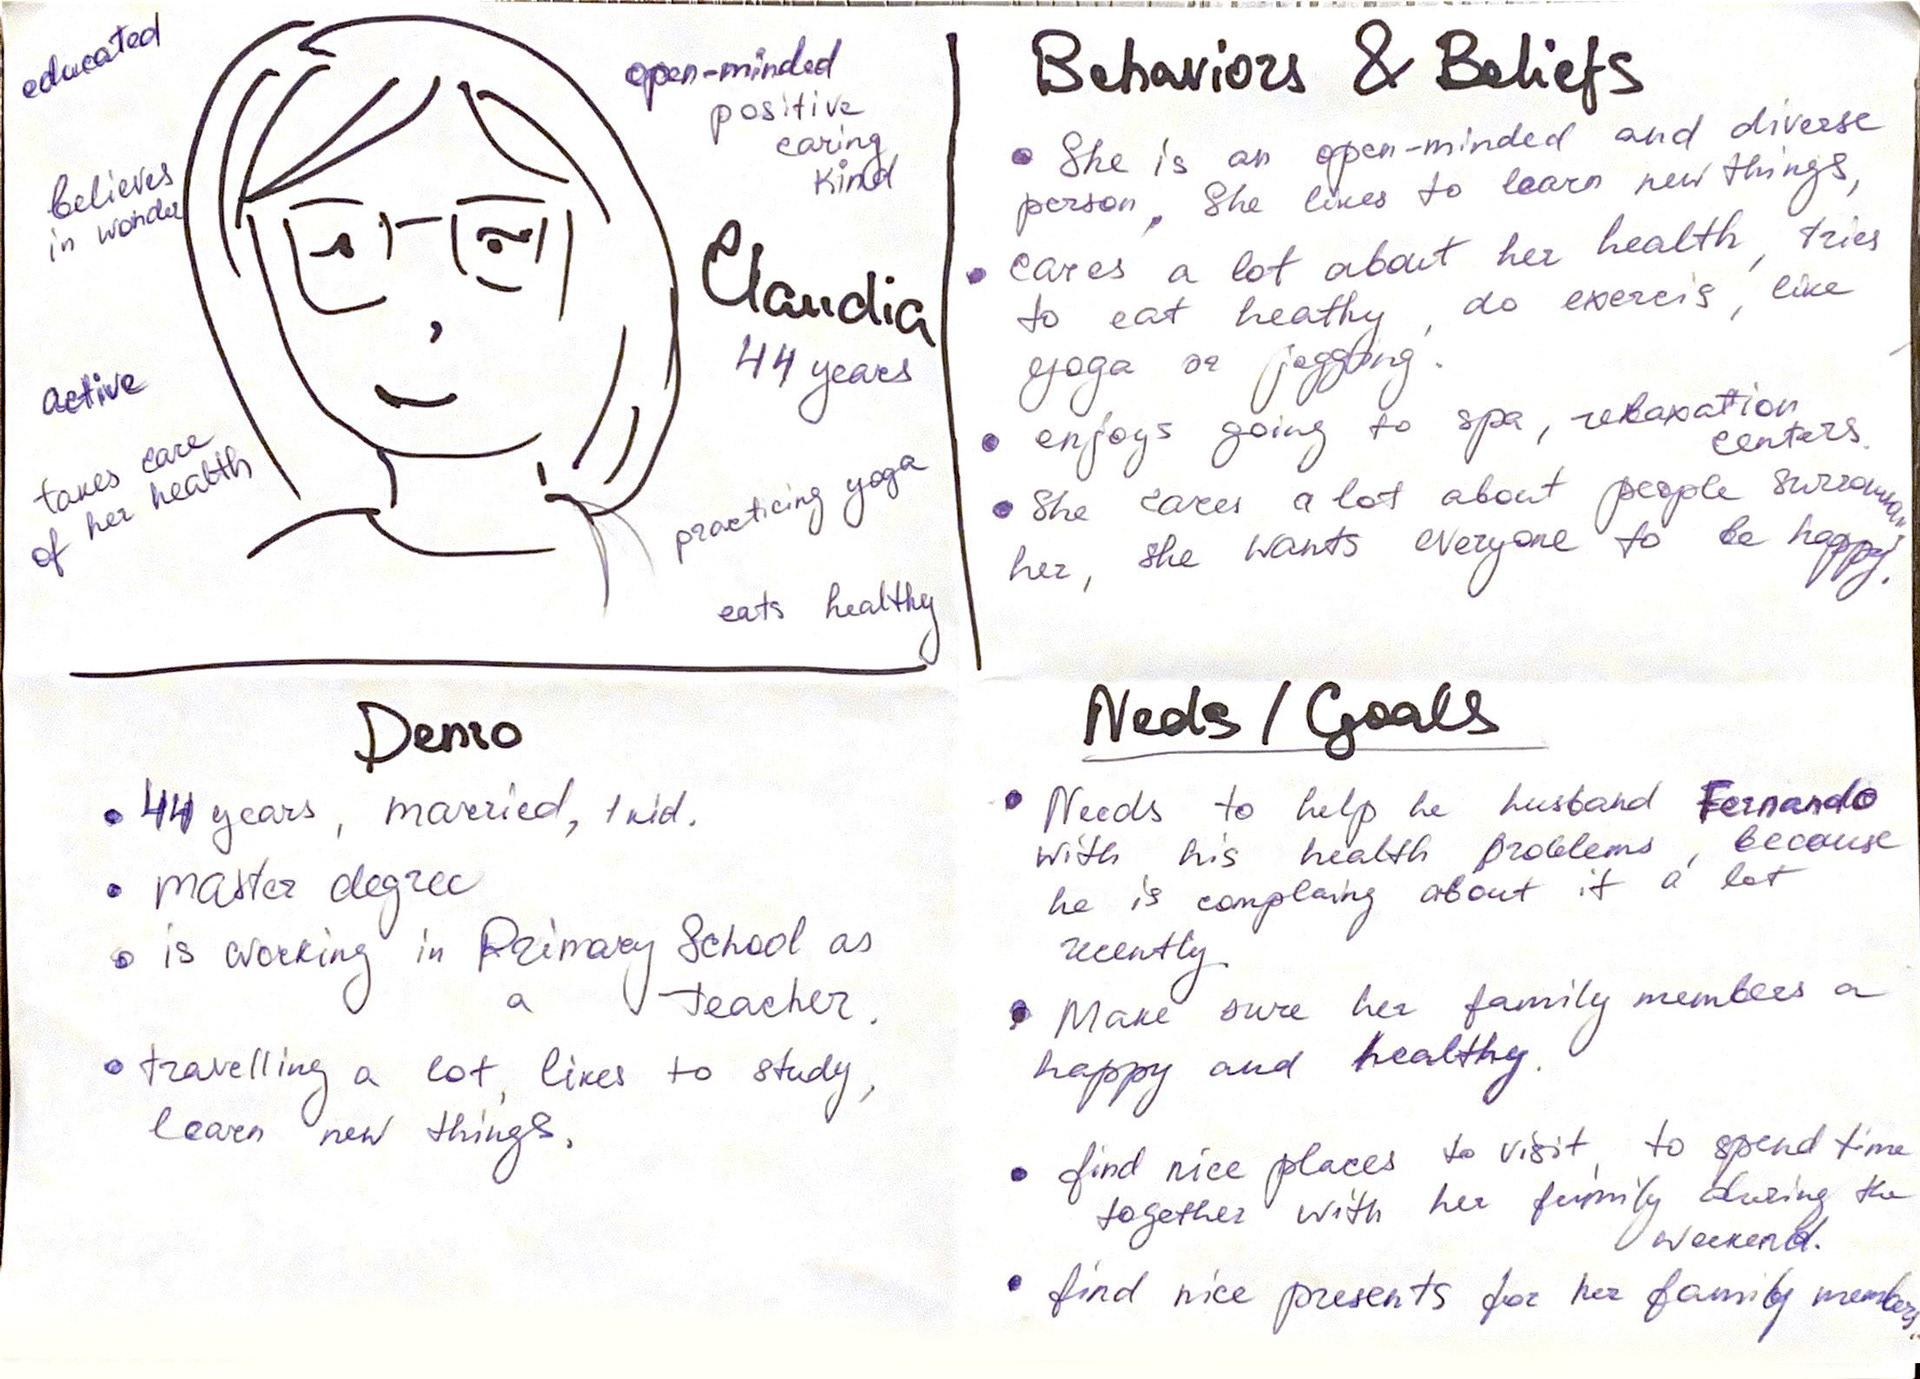 educated
believes
in wonder
active
takes care
of her health
open-minded
positive
caring
kind
Claudia
44 years
practicing yoga
eats healthy
Behaviors & Beliefs
• She is an open-minded and diverse
person, She likes to learn new things,
• cares a lot about her health, tries
to eat heathy, do exercis, like
yoga or jogging.
• enjoys going to spa, relaxation
centers.
• She cares a lot about people
her, she wants everyone to be happy.
Demo
• 44 years, married, 1 kid.
• master degree
• is working in Primary School as
a teacher.
• travelling a lot, likes to study,
learn new things.
Neds / Goals
• Needs to help he husband Fernando
with his health problems, because
he is complaing about it a lot
recently.
• Make sure her family members a
happy and healthy.
• find nice places to visit, to spend time
together with her family during the
weekend.
• find nice presents for her family members.